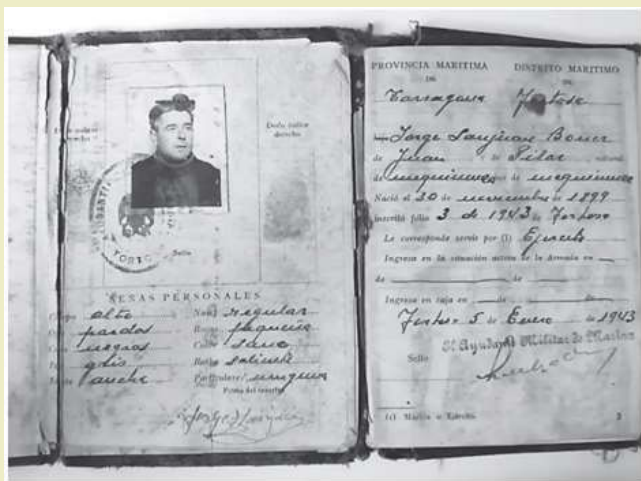 Dedo índice
derecho
Sello
SEÑAS PERSONALES
alto
regular
pardos
pequeña
negras
Color sano
saliente
ancha
Particulares ninguna
Firma del inscrito
PROVINCIA MARITIMA
DE
Tarragona
DISTRITO MARITIMO
DE
Tortosa
Jorge Sanjuan Boner
de Juan y de Pilar
de mequinenza de mequinenza
Nació el 30 de noviembre de 1899
inscrito folio 3 de 1943 de Tortosa
Le corresponde servir por (1) Ejercito
Ingresa en la situación activa de la Armada en
de de
Ingresa en caja en de de
Tortosa 5 de Enero de 1943
El Ayudante Militar de Marina
Sello
(1) Marina o Ejército.
3